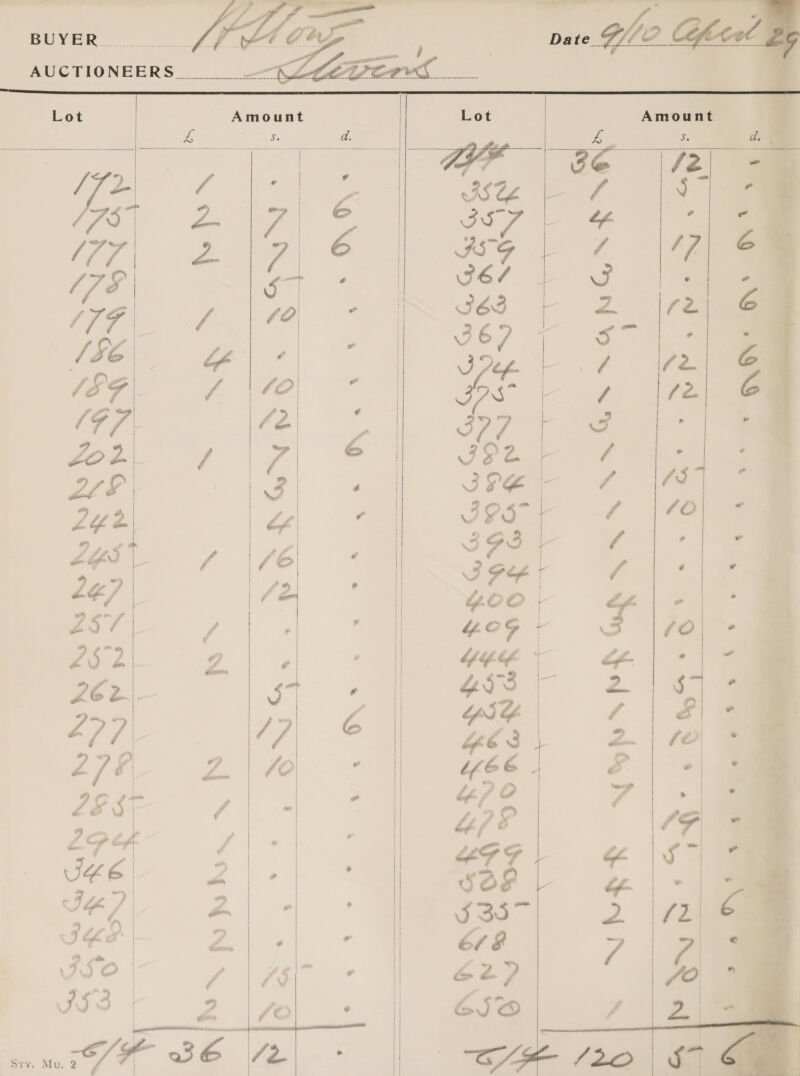 BUYER W Stow Date 9/10 April 29
AUCTIONEERS Stevens
Lot Amount
£ s. d.
172 1 . .
175 2 7 6
177 2 7 6
178 5 .
179 1 10 .
186 4 . .
189 1 10 .
197 12 .
202 1 7 6
218 3 .
242 4 .
245 1 16 .
247 12 .
251 1 . .
252 2 . .
262 5 .
277 17 6
278 2 10 .
285 1 . .
294 1 . .
346 2 . .
347 2 . .
348 2 . .
350 1 15 .
353 2 10 .
C/F 36 12 .
Sty. Mu. 2
Lot Amount
£ s. d.
B/F 36 12 -
354 1 5 .
357 4 . .
359 1 17 6
361 3 . .
363 2 12 6
367 5 . .
374 1 12 6
375 1 12 6
377 3 . .
382 1 . .
384 1 15 .
385 1 10 .
393 1 . .
394 1 . .
400 4 . .
409 3 10 .
444 4 . .
453 2 5 .
454 1 8 .
463 2 10 .
466 8 . .
470 7 . .
478 19 .
499 4 5 .
508 4 . .
535 2 12 6
618 7 7 .
627 10 .
650 1 2 -
C/F 120 5 6